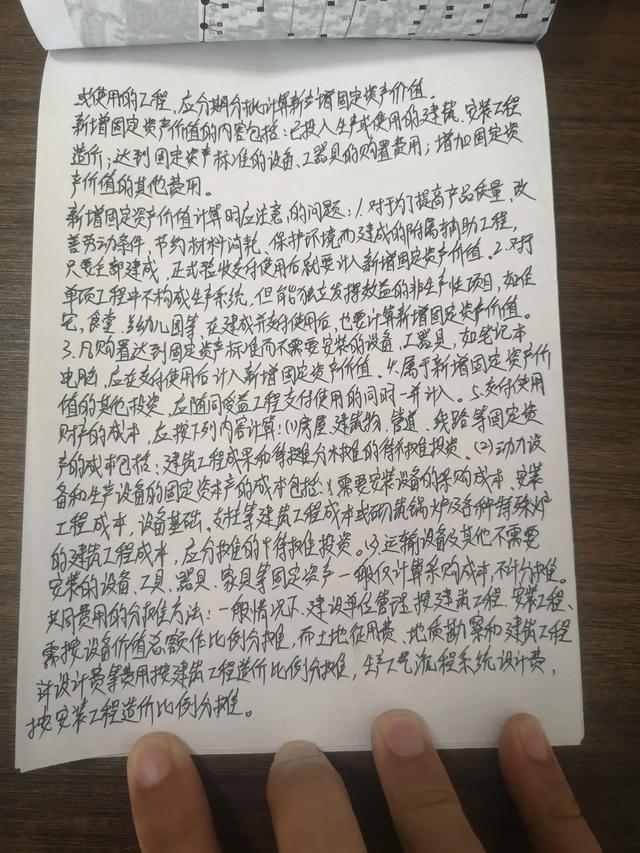 或使用的工程，应分期分批计算新增固定资产价值。
新增固定资产价值的内容包括：已投入生产或使用的建筑、安装工程
造价；达到固定资产标准的设备、工器具的购置费用；增加固定资
产价值的其他费用。
新增固定资产价值计算时应注意的问题：1.对于为了提高产品质量，改
善劳动条件、节约材料消耗、保护环境而建成的附属辅助工程，
只要全部建成，正式验收交付使用后就要计入新增固定资产价值。2.对于
单项工程中不构成生产系统，但能独立发挥效益的非生产性项目，如住
宅、食堂、幼儿园等，在建成并交付使用后，也要计算新增固定资产价值。
3.凡购置达到固定资产标准而不需要安装的设备、工器具，如笔记本
电脑，应在交付使用后计入新增固定资产价值。4.属于新增固定资产价
值的其他投资，应随同受益工程交付使用的同时一并计入。5.交付使用
财产的成本，应按下列内容计算：(1)房屋、建筑物、管道、线路等固定资
产的成本包括：建筑工程成果和待摊分摊的待摊投资。(2)动力设
备和生产设备的固定资产的成本包括：需要安装设备的采购成本、安装
工程成本，设备基础、支柱等建筑工程成本或砌筑锅炉及各种特殊炉
的建筑工程成本，应分摊的待摊投资。(3)运输设备及其他不需要
安装的设备、工具、器具、家具等固定资产一般仅计算采购成本，不计分摊。
共同费用的分摊方法：一般情况下，建设单位管理按建筑工程、安装工程、
需按设备价值总额作比例分摊，而土地征用费、地质勘察和建筑工程
计设计费等费用按建筑工程造价比例分摊，生产工气流程系统设计费，
按安装工程造价比例分摊。